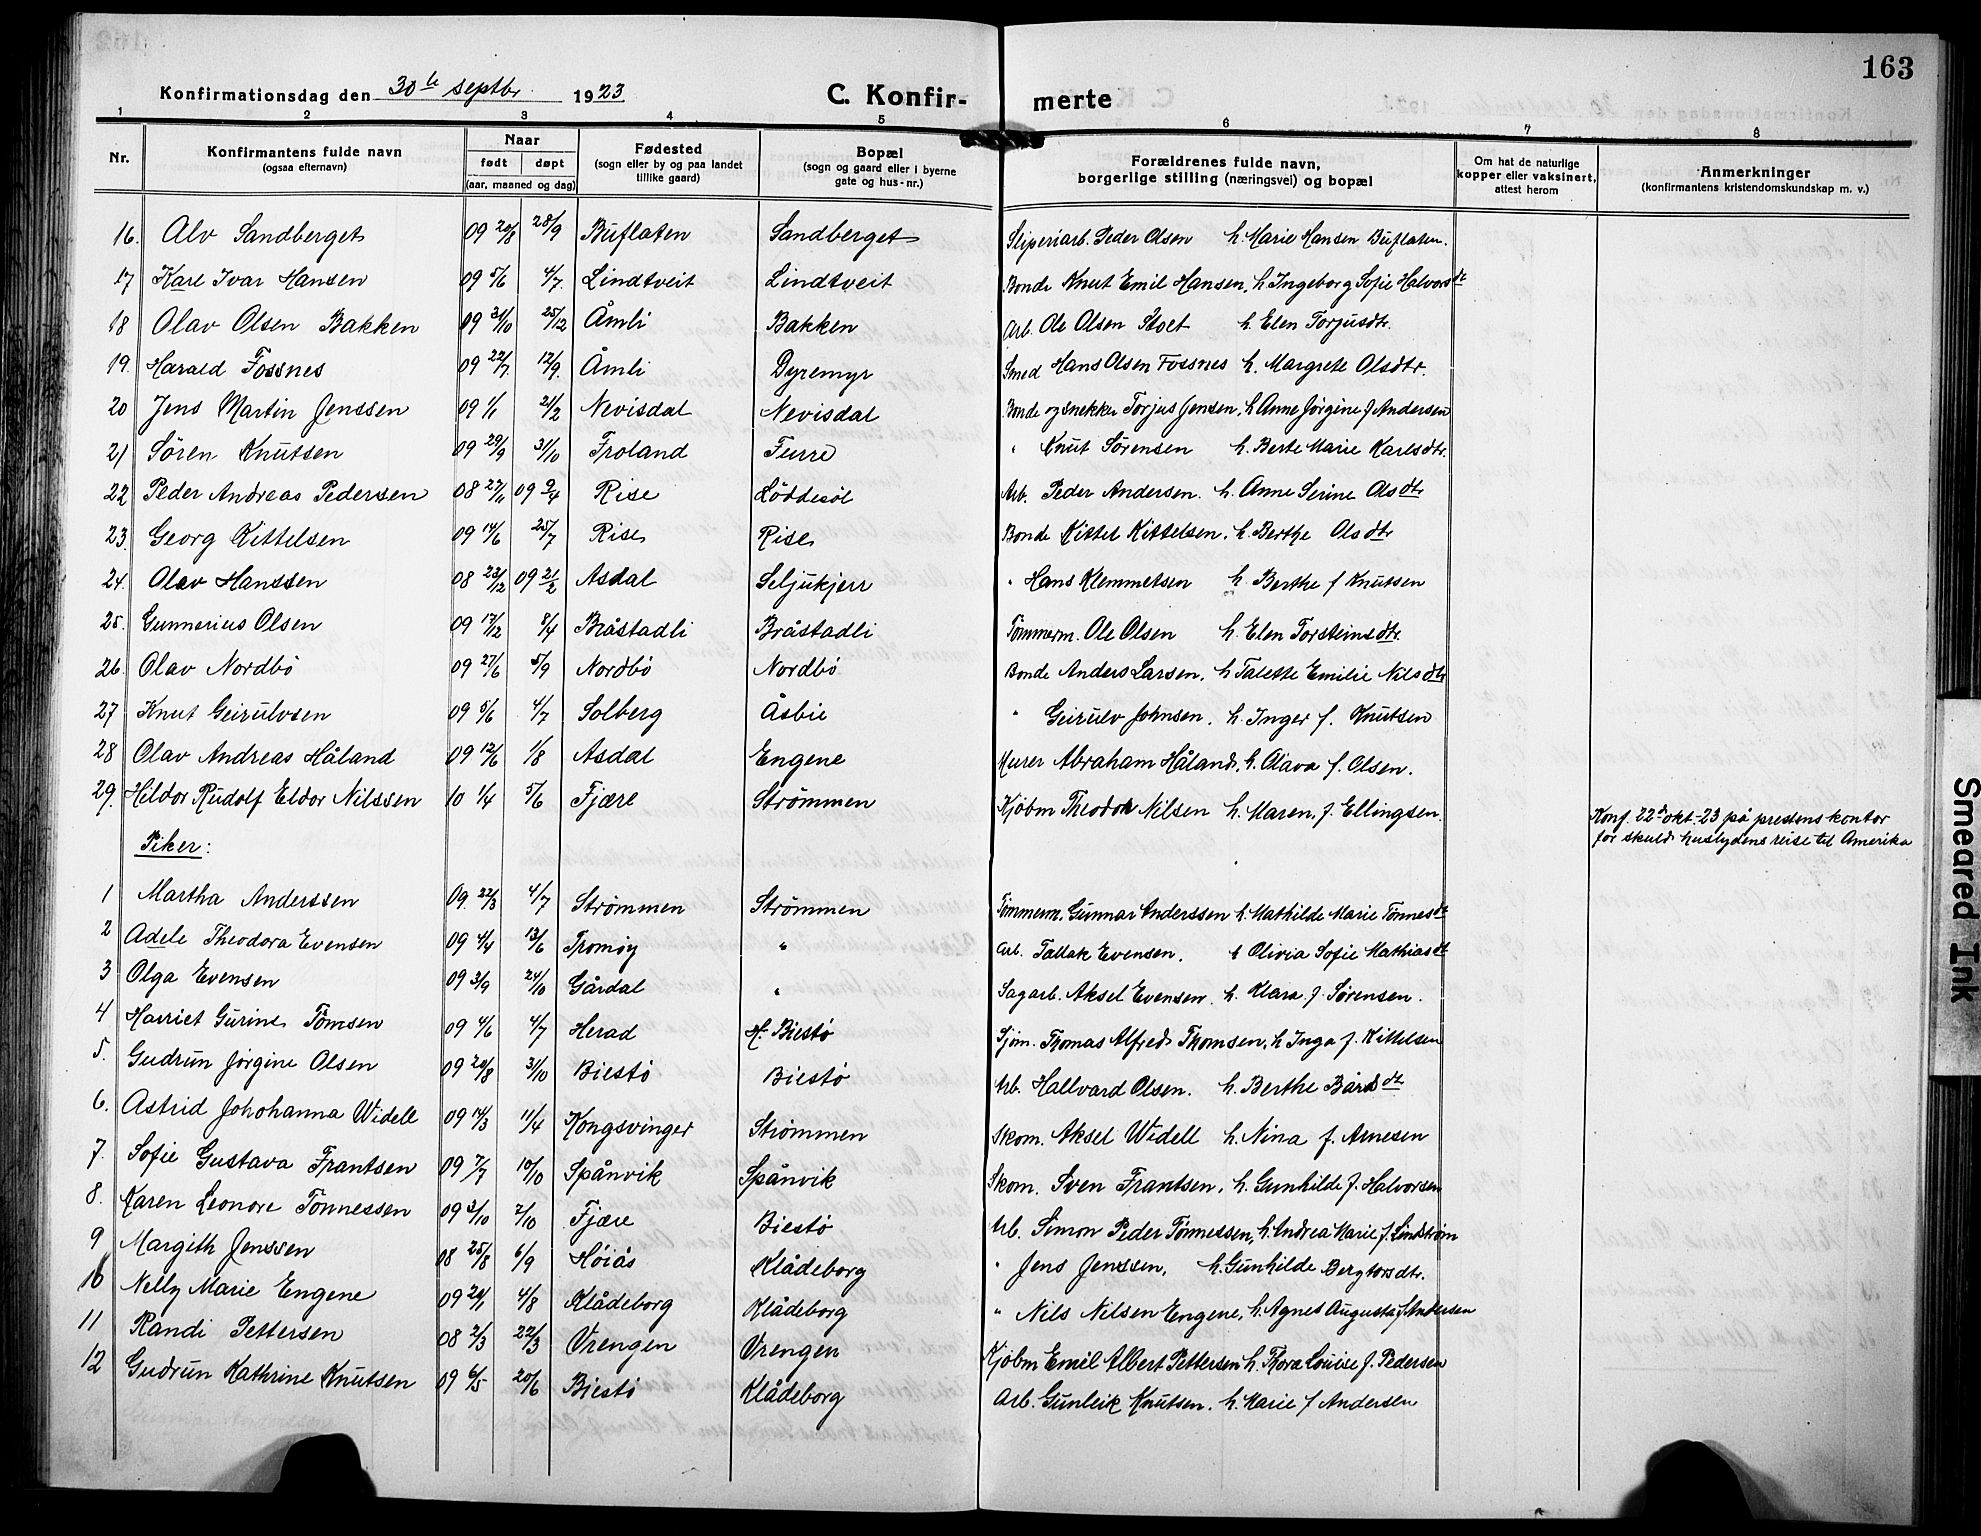 163
Konfirmationsdag den 30te septbr. 1923 C. Konfir- merte
1 2 3 4 5 6 7 8
Nr. Konfirmantens fulde navn (ogsaa efternavn) Naar født døpt (aar, maaned og dag) Fødested (sogn eller by og paa landet tillike gaard) Bopæl (sogn og gaard eller i byerne gate og hus-nr.) Forældrenes fulde navn, borgerlige stilling (næringsvei) og bopæl Om hat de naturlige kopper eller vaksinert, attest herom Anmerkninger (konfirmantens kristendomskundskap m. v.)
16. Alv Sandberget 09 20/8 28/9 Buflaten Sandberget Sliperiarb. Peder Olsen h. Marie Hansen Buflaten.
17 Karl Ivar Hansen 09 5/6 4/7. Lindtveit Lindtveit Bonde Knut Emil Hansen, h. Ingeborg Sofie Halvorsdt
18 Olav Olsen Bakken 09 31/10 25/12 Åmli Bakken Arb. Ole Olsen Stoet h. Elen Torjusdtr.
19. Harald Fossnes 09 22/7 12/9. Åmli Dyremyr Smed Hans Olsen Fossnes h. Margrete Olsdtr.
20 Jens Martin Jenssen 09 1/1 21/2 Nevisdal Nevisdal Bonde og snekker Torjus Jensen, h. Anne Jørgine f Andersen
21 Søren Knutsen 09 29/9 31/10 Froland Furre " Knut Sørensen h. Berte Marie Karlsdtr.
22 Peder Andreas Pedersen 08 27/11 09 9/4 Rise Løddesøl Arb. Peder Andersen. h. Anne Serine Olsdtr
23. Georg Kittelsen 09 14/6 25/7 Rise Rise Bonde Kittel Kittelsen. h. Berthe Olsdtr
24. Olav Hanssen 08 23/12 09 21/2 Asdal Seljukjerr " Hans Klemmetsen h. Berthe f Knutsen
25. Gunnerius Olsen 09 17/12 8/4 Bråstadli Bråstadli Tømmerm. Ole Olsen h. Elen Torsteinsdtr
26. Olav Nordbö 09 27/6 5/9 Nordbö Nordbö Bonde Anders Larsen. h Talette Emilie Nilsdtr
27 Knut Geirulvsen 09 5/6 4/7 Solberg Åsbie " Geirulv Johnsen. h. Inger f. Knutsen
28 Olav Andreas Håland 09 12/6 1/8 Asdal Engene Murer Abraham Håland, h. Olava f. Olsen.
29. Hildor Rudolf Eldor Nilssen 10 1/4 5/6 Fjære Strømmen Kjøbm Theodor Nilsen h. Maren, f. Ellingsen. Konf. 22d okt-23 på prestens kontor
for skuld huslydens reise til Amerika
Piker:
1 Martha Anderssen 09. 22/3 4/7 Strømmen Strømmen Tømmerm. Gunnar Anderssen h. Mathilde Marie Tønnesdt
2 Adele Theodora Evensen 09 4/4 13/6 Tromøy " Arb. Tallak Evensen. h Olivia Sofie Mathiasdt
3 Olga Evensen 09 3/9 24/10 Gårdal " Sagarb. Aksel Evensen. h. Klara f. Sørensen.
4 Harriet Gurine Tömsen 09 4/6 4/7 Herad H. Biestø Sjøm. Thomas Alfred Thomsen, h Inga f. Kittelsen
5. Gudrun Jørgine Olsen 09 20/8 31/10 Biestø Biestø Arb. Hallvard Olsen. h. Berthe Bårdsdt
6. Astrid Johohanna Widell 09 14/3 11/4 Kongsvinger Strømmen Skom. Aksel Widell h. Nina f. Arnesen
7. Sofie Gustava Frantsen 09 7/7 10/10 Spånvik Spånvik Skom. Sven Frantsen. h. Gunhilde f. Halvorsen
8. Karen Leonore Tönnessen 09 3/10 2/10 Fjære Biestø Arb. Simon Peder Tønnessen, h. Andrea Marie f. Lindstrøm
9 Margith Jenssen 08 25/8 6/9 Höiås Klådeborg " Jens Jenssen, h. Gunhilde Bergtorsdtr.
10 Nelly Marie Engene 09 20/1 4/8 Klådeborg Klådeborg " Nils Nilsen Engene, h. Agnes Augusta f Andersen
11 Randi Pettersen 08 2/3 22/3 Vrengen Vrengen Kjøbm Emil Albert Pettersen h. Thora Louise f. Pedersen
12 Gudrun Kathrine Knutsen 09 6/5 20/6 Biestø Klådeborg Arb. Gunleik Knutsen. h. Marie f Andersen
Smeared Ink